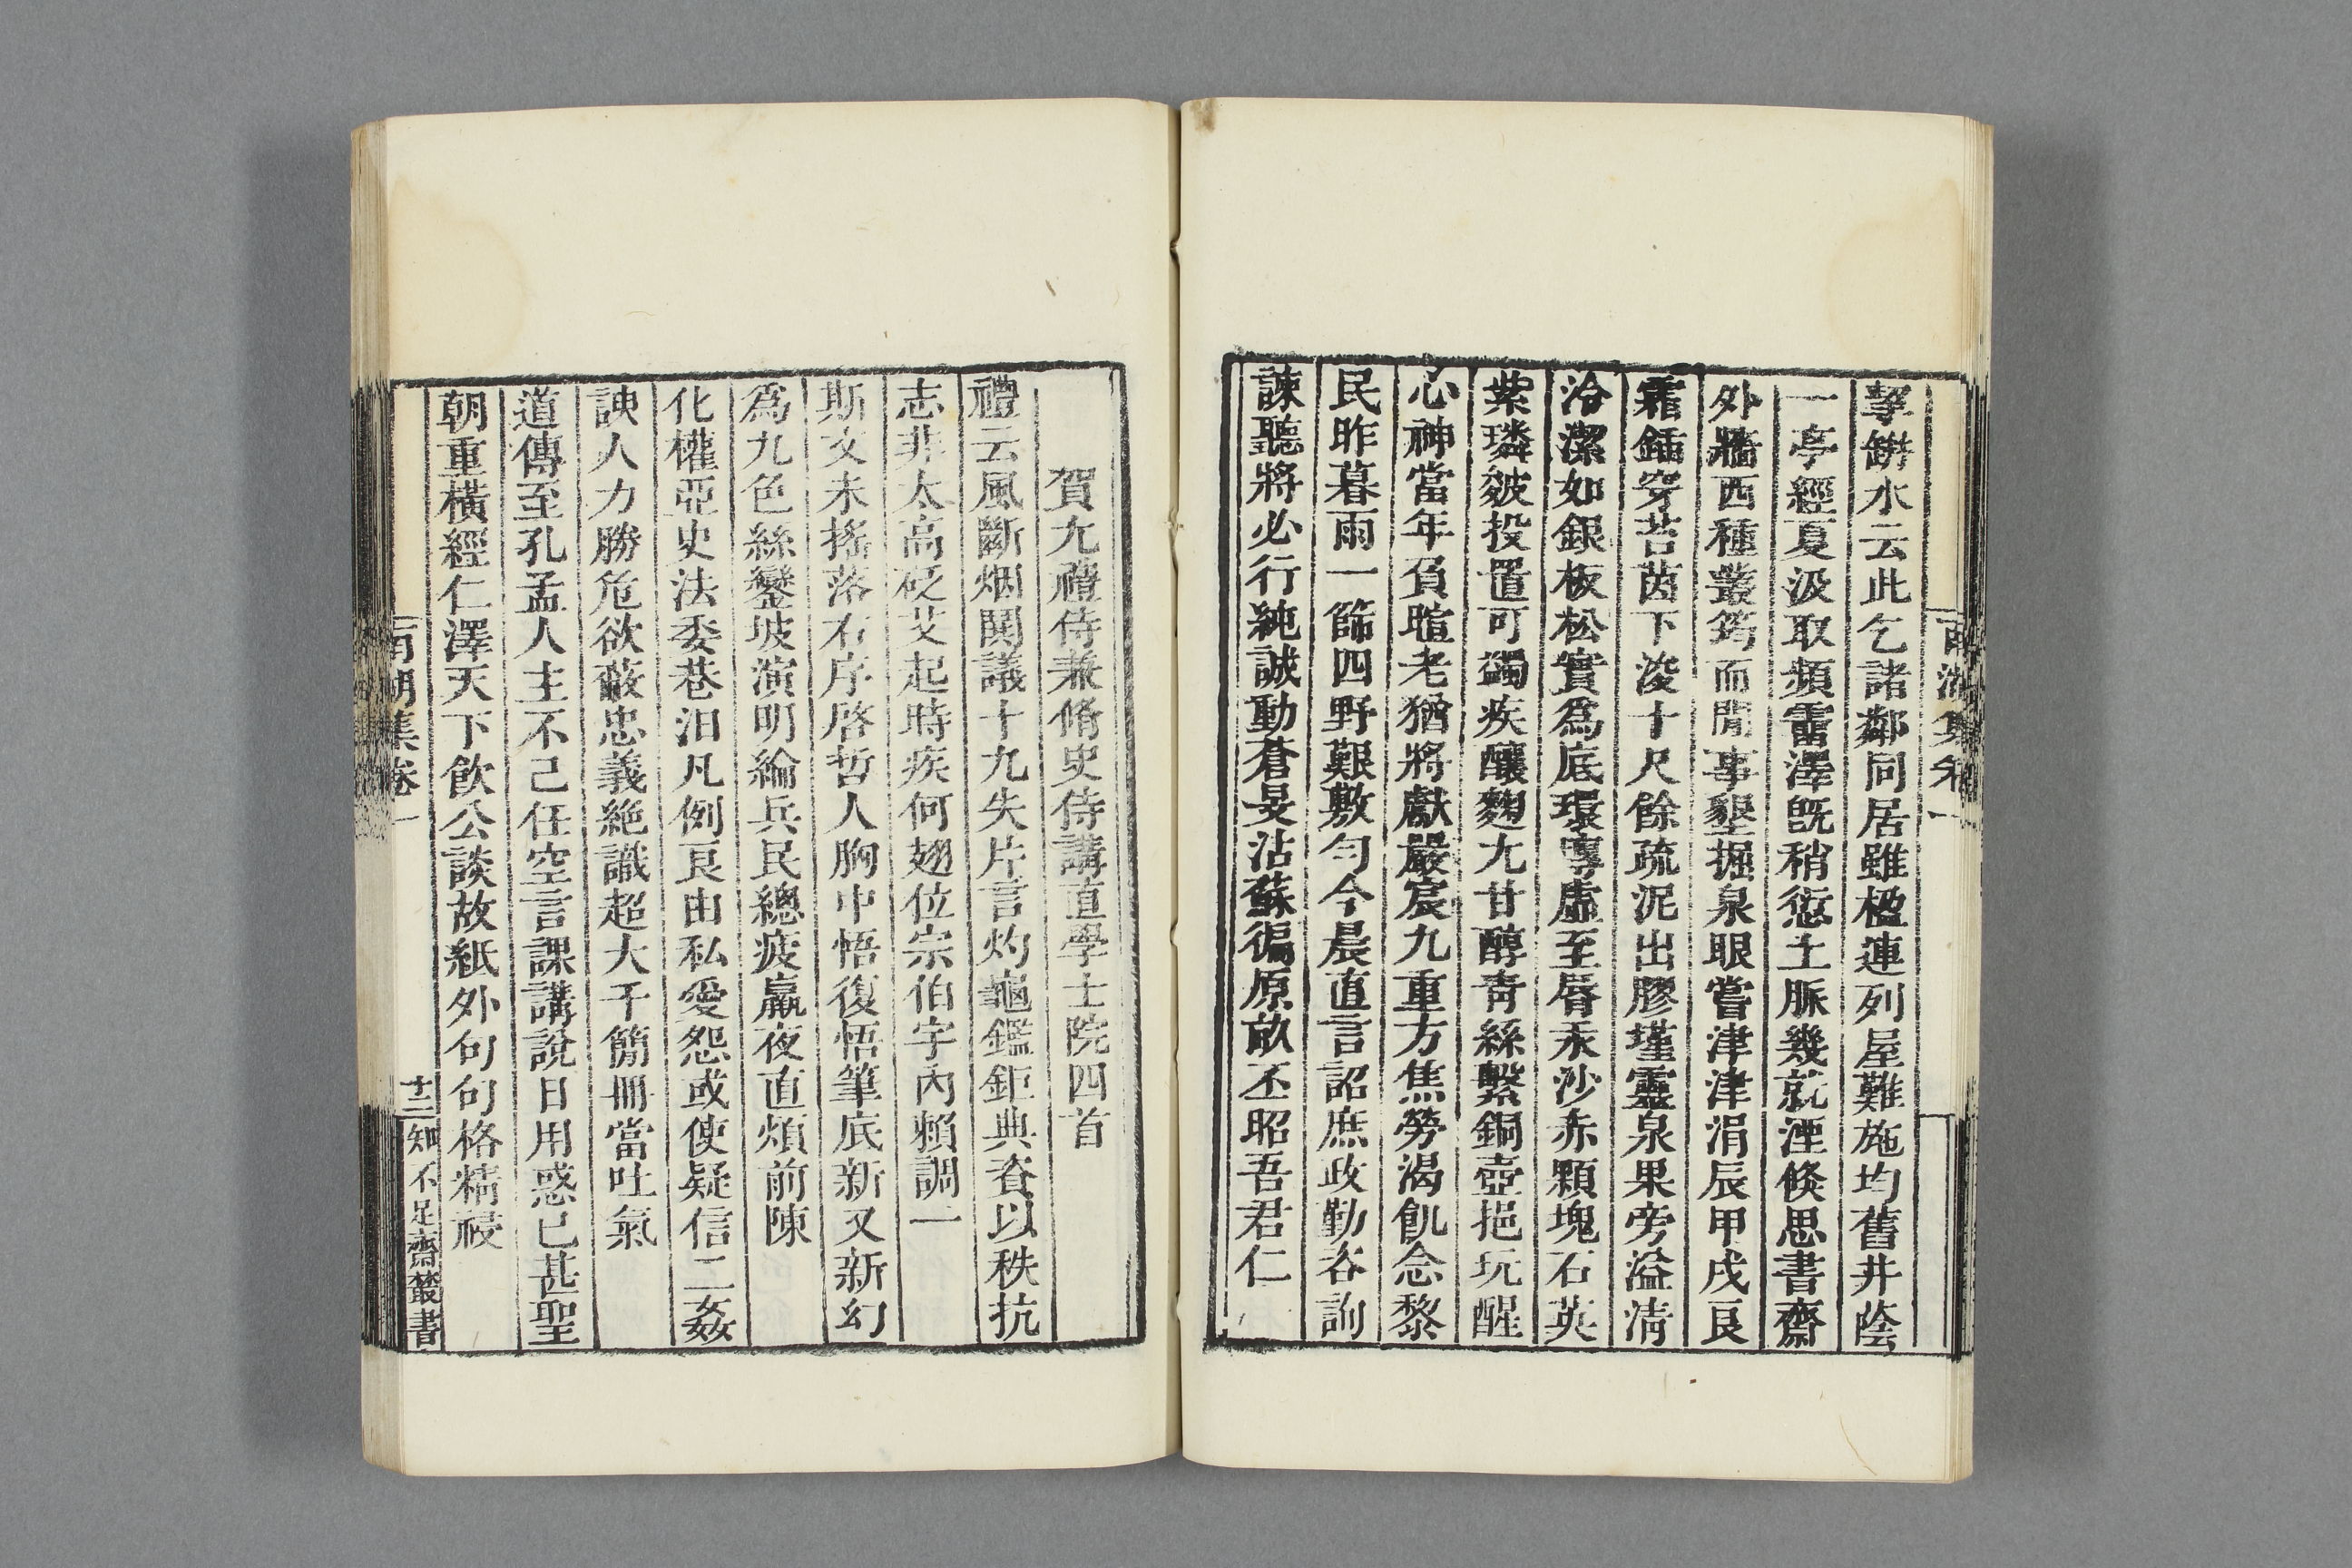 挈缾水云此乞諸鄰同居雖楹連列屋難施均舊井陰
一亭經夏汲取頻雷澤旣稍愆土脈幾就湮倏思書齋
外牆西種叢筠而閒事墾掘泉眼嘗津津涓辰甲戌良
霜鍤穿苔茵下浚十尺餘疏泥出膠瑾靈泉果旁溢淸
泠潔如銀板松實爲底環專虛至脣汞沙赤顆塊石英
紫璘皴投置可蠲疾釀麴尤甘醇靑絲繫銅壺挹玩醒
心神當年負暄老猶將獻嚴宸九重方焦勞渴飢念黎
民昨暮雨一篩四野艱敷勻今晨直言詔庶政勤咨詢
諫聽將必行純誠動蒼旻沾蘇徧原畝丕昭吾君仁
賀尤禮侍兼脩史侍講直學士院四首
禮云風斷烟開議十九失片言灼龜鑑鉅典賚以秩抗
志非太高砭艾起時疾何翅位宗伯宇內賴調一
斯文未搖落右序啓哲人胸中悟復悟筆底新又新幻
爲九色絲鑾坡演明綸兵民總疲羸夜直煩前陳
化權亞史法委巷汨凡例良由私愛怨或使疑信二姦
諛人力勝危欲蔽忠義絶識超大千簡冊當吐氣
道傳至孔孟人主不己任空言課講說日用惑已甚聖
朝重橫經仁澤天下飮公談故紙外句句格精祲
南湖集卷一
十二
知不足齋叢書